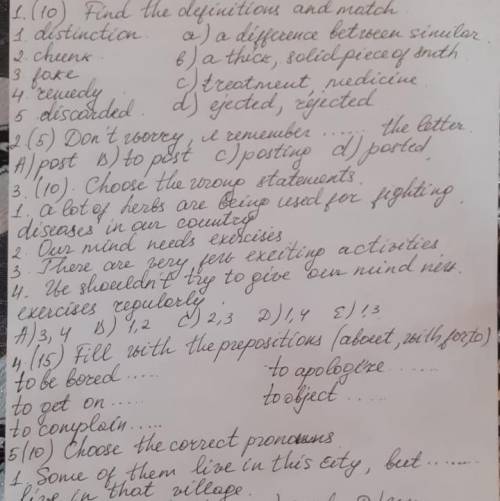 1.(10) Find the definitions and match
1 distinction a) a difference between similar
2 chunk b) a thick, solid piece of smth
3 fake c) treatment, medicine
4 remedy d) ejected, rejected
5 discarded
2.(5) Don't worry, I remember ...... the letter.
A) post B) to post C) posting d) posted
3.(10). Choose the wrong statements.
1. a lot of herbs are being used for fighting
diseases in our country
2. Our mind needs exercises
3. There are very few exciting activities
4. We shouldn't try to give our mind new
exercises regularly
A) 3, 4 B) 1,2 C) 2,3 D) 1,4 E) 1,3
4.(15) Fill with the prepositions (about, with, for, to)
to be bored ..... to apologize ......
to get on ..... to object .....
to complain .....
5(10) Choose the correct pronouns
1. Some of them live in this city, but .......
live in that village.